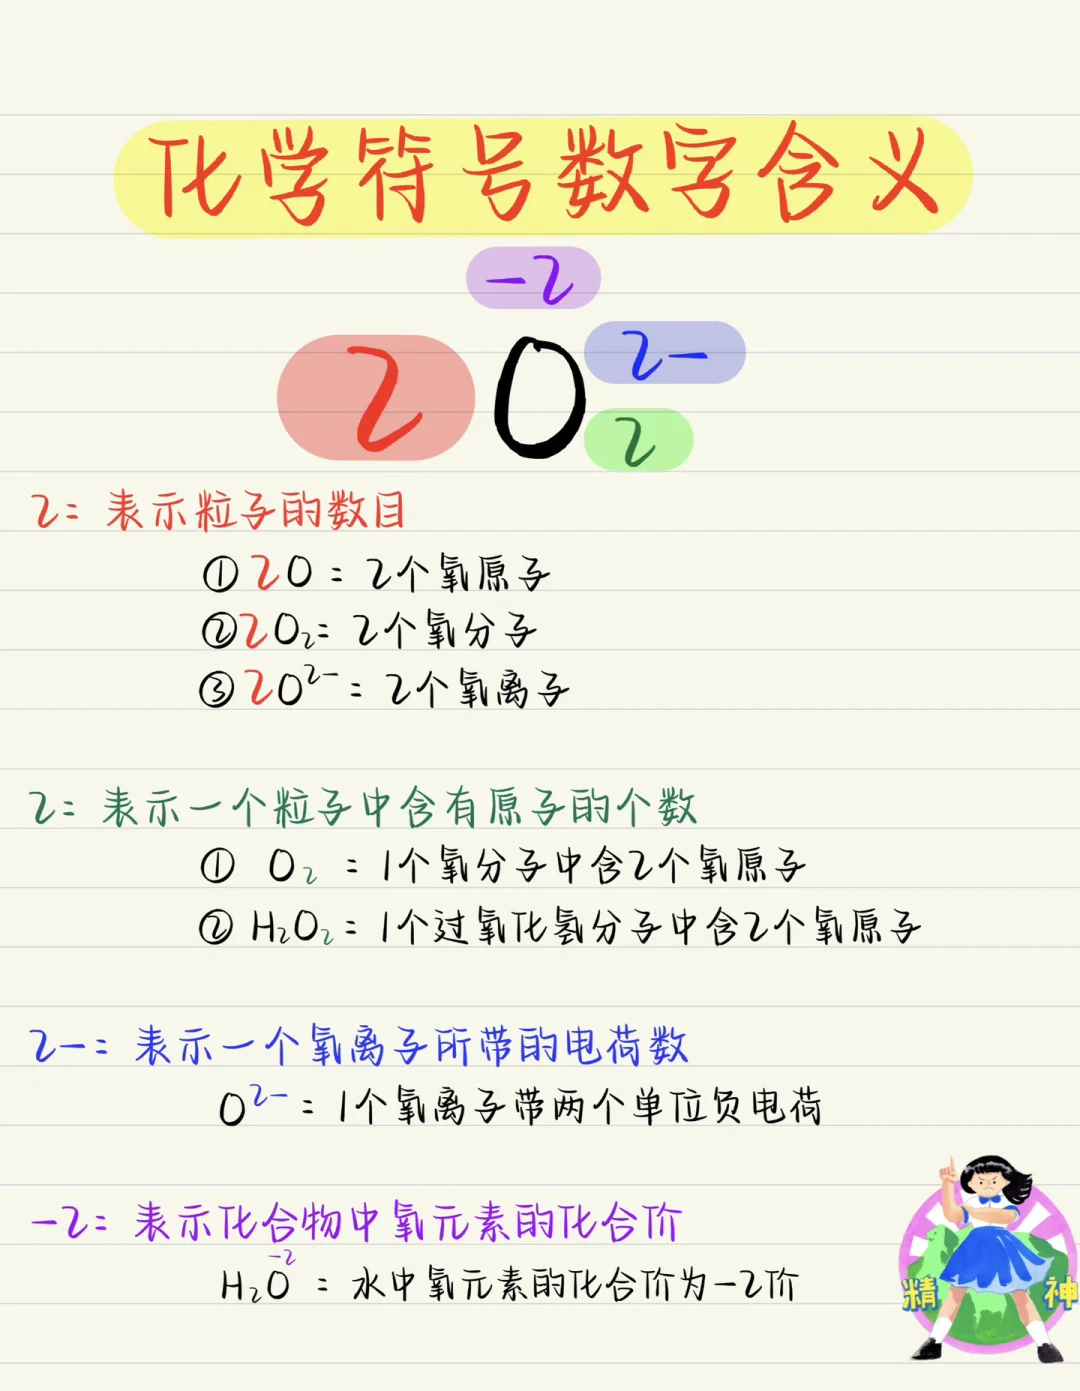 化学符号数字含义
-2
2 O 2-
2
2= 表示粒子的数目
① 2O = 2个氧原子
② 2O₂= 2个氧分子
③ 2O²⁻ = 2个氧离子
2= 表示一个粒子中含有原子的个数
① O₂ = 1个氧分子中含2个氧原子
② H₂O₂ = 1个过氧化氢分子中含2个氧原子
2-= 表示一个氧离子所带的电荷数
O²⁻ = 1个氧离子带两个单位负电荷
-2= 表示化合物中氧元素的化合价
-2
H₂O = 水中氧元素的化合价为-2价
精 神